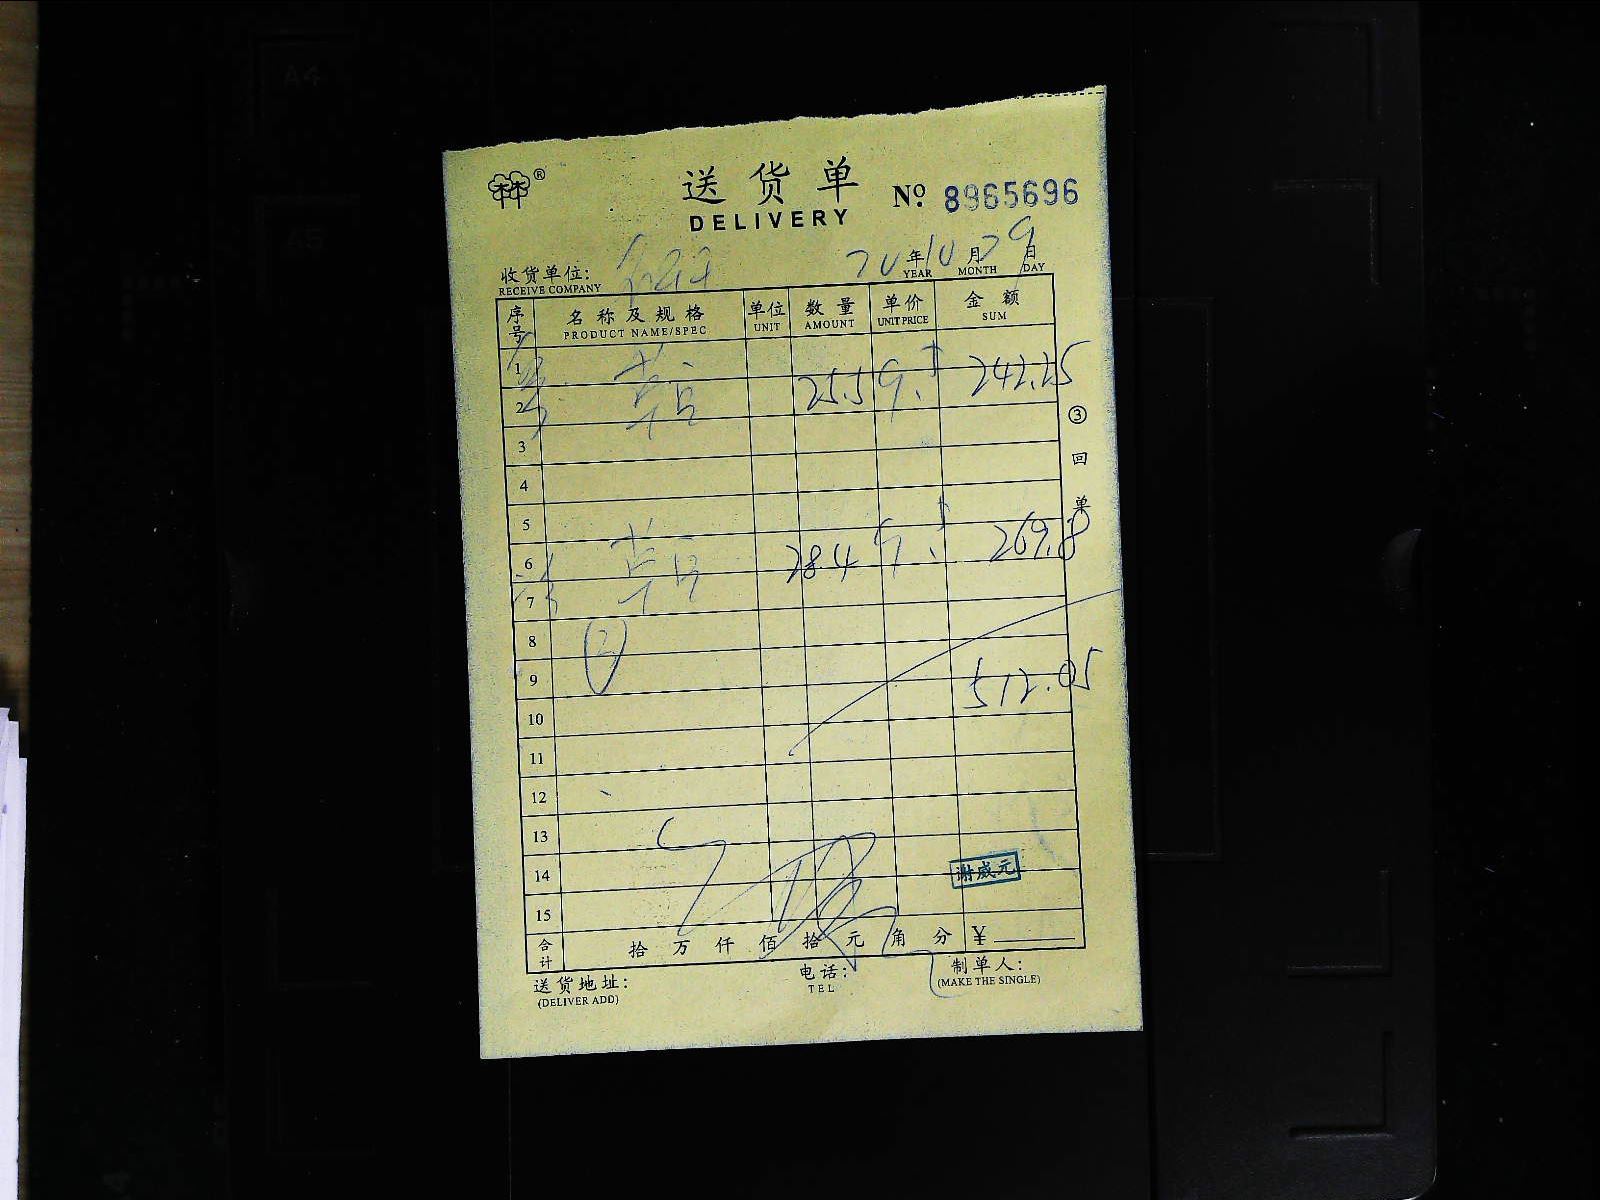 A4
A5
林®
送货单
DELIVERY
No. 8965696
20年10月29日
YEAR MONTH DAY
收货单位:
RECEIVE COMPANY
序号 名称及规格 单位 数量 单价 金额
PRODUCT NAME/SPEC UNIT AMOUNT UNIT PRICE SUM
1
2 25.5 9.5 242.25
3
4
5
6 28.4 9.5 269.8
7
8 ②
9 512.05
10
11
12
13
14 谢威元
15
合计 拾万仟佰拾元角分 ¥
③回单
送货地址: 电话: 制单人:
(DELIVER ADD) TEL (MAKE THE SINGLE)